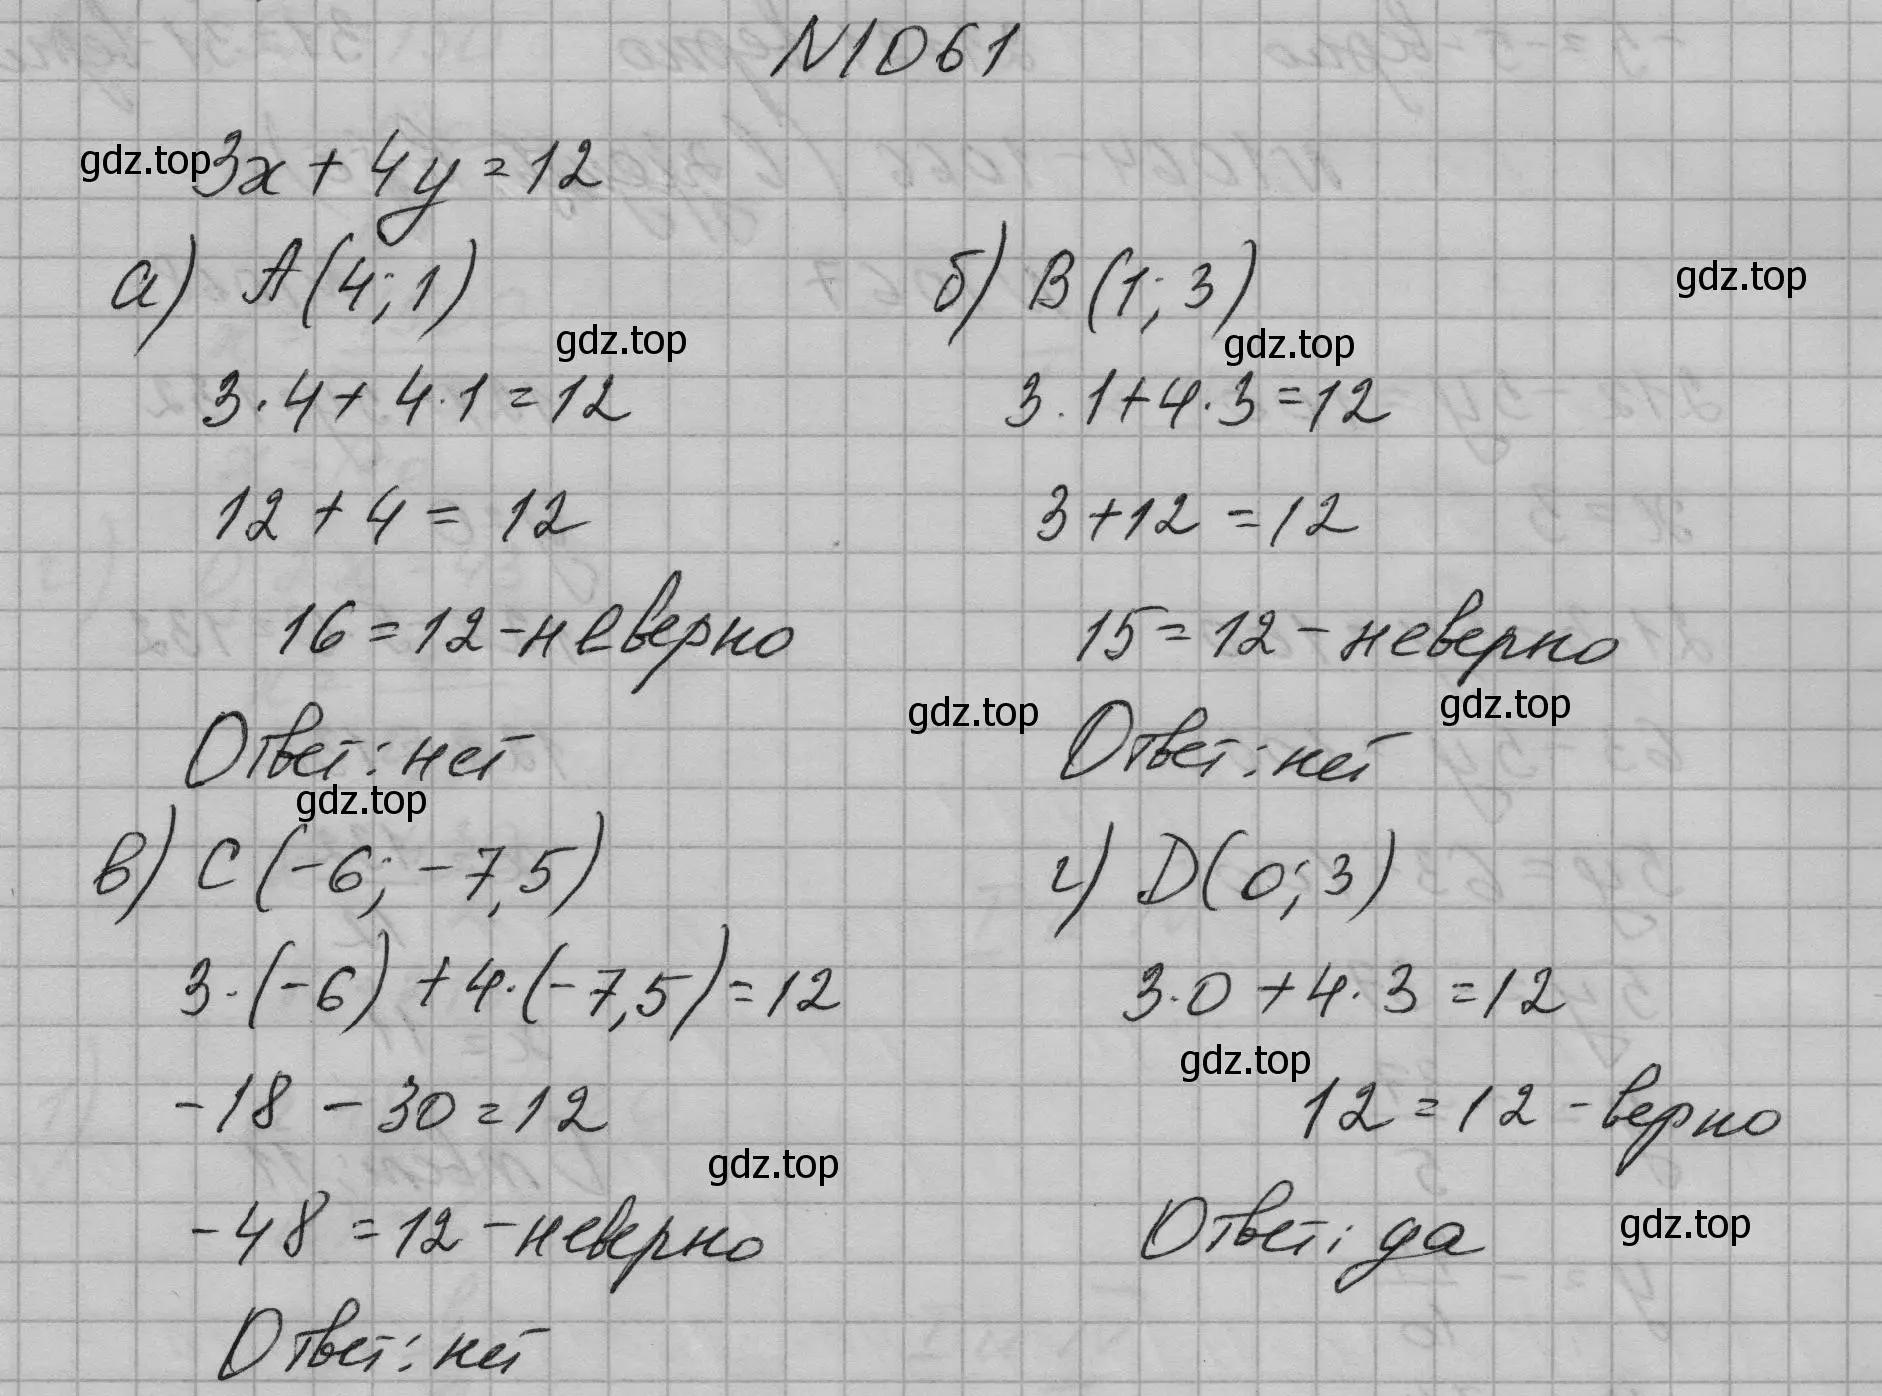 N1061
gdz.top
3x + 4y = 12
а) A(4; 1)
gdz.top
3·4 + 4·1 = 12
12 + 4 = 12
16 = 12 - неверно
Ответ: нет
gdz.top
б) B(1; 3)
gdz.top
gdz.top
3·1 + 4·3 = 12
3 + 12 = 12
15 = 12 - неверно
gdz.top
gdz.top
Ответ: нет
в) C(-6; -7,5)
3·(-6) + 4·(-7,5) = 12
-18 - 30 = 12
gdz.top
-48 = 12 - неверно
Ответ: нет
г) D(0; 3)
3·0 + 4·3 = 12
gdz.top
12 = 12 - верно
Ответ: да
gdz.top